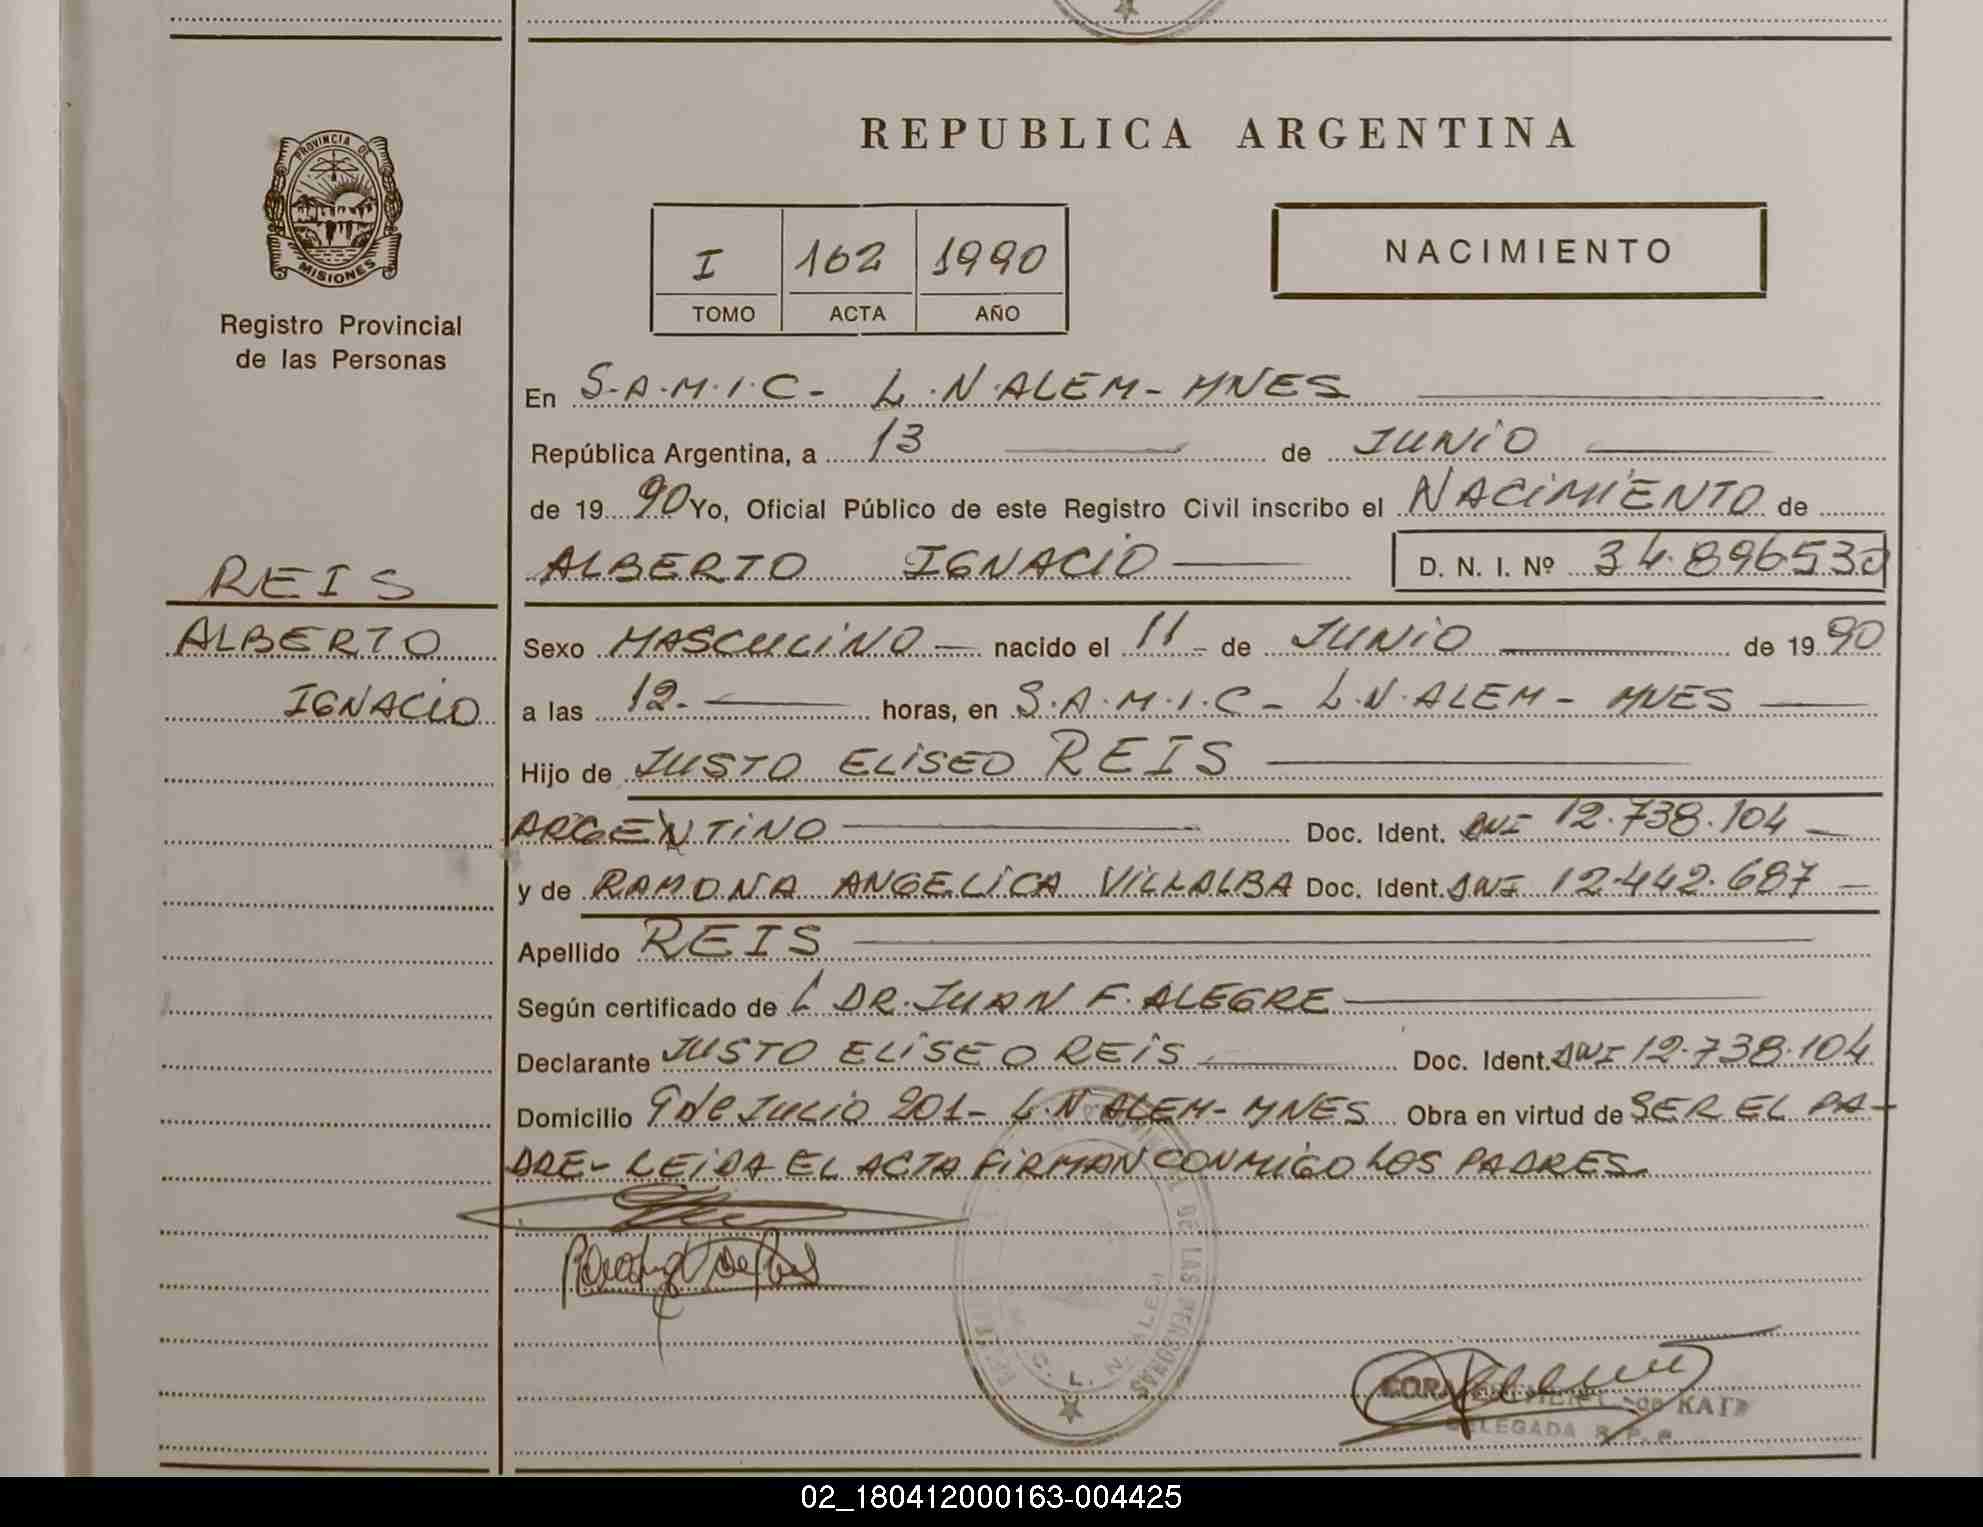 REPUBLICA ARGENTINA
PROVINCIA DE
MISIONES
Registro Provincial
de las Personas
I 162 1990
TOMO ACTA AÑO
NACIMIENTO
En S.A.M.I.C- L.N.ALEM- MNES
República Argentina, a 13 de JUNIO
de 1990 Yo, Oficial Público de este Registro Civil inscribo el NACIMIENTO de
ALBERTO IGNACIO D. N. I. Nº 34.896530
REIS
ALBERTO
IGNACIO
Sexo MASCULINO nacido el 11 de JUNIO de 1990
a las 12. horas, en S.A.M.I.C- L.N.ALEM- MNES
Hijo de JUSTO ELISEO REIS
ARGENTINO Doc. Ident. DNI 12.738.104
y de RAMONA ANGELICA VILLALBA Doc. Ident. DNI 12.442.687
Apellido REIS
Según certificado de L DR. JUAN F. ALEGRE
Declarante JUSTO ELISEO REIS Doc. Ident. DNI 12.738.104
Domicilio 9 de JULIO 201- L.N ALEM- MNES Obra en virtud de SER EL PA-
DRE- LEIDA EL ACTA FIRMAN CONMIGO LOS PADRES
DE LAS PERSONAS
L. N. ALEM
KAID
DELEGADA R. P. P.
02_180412000163-004425